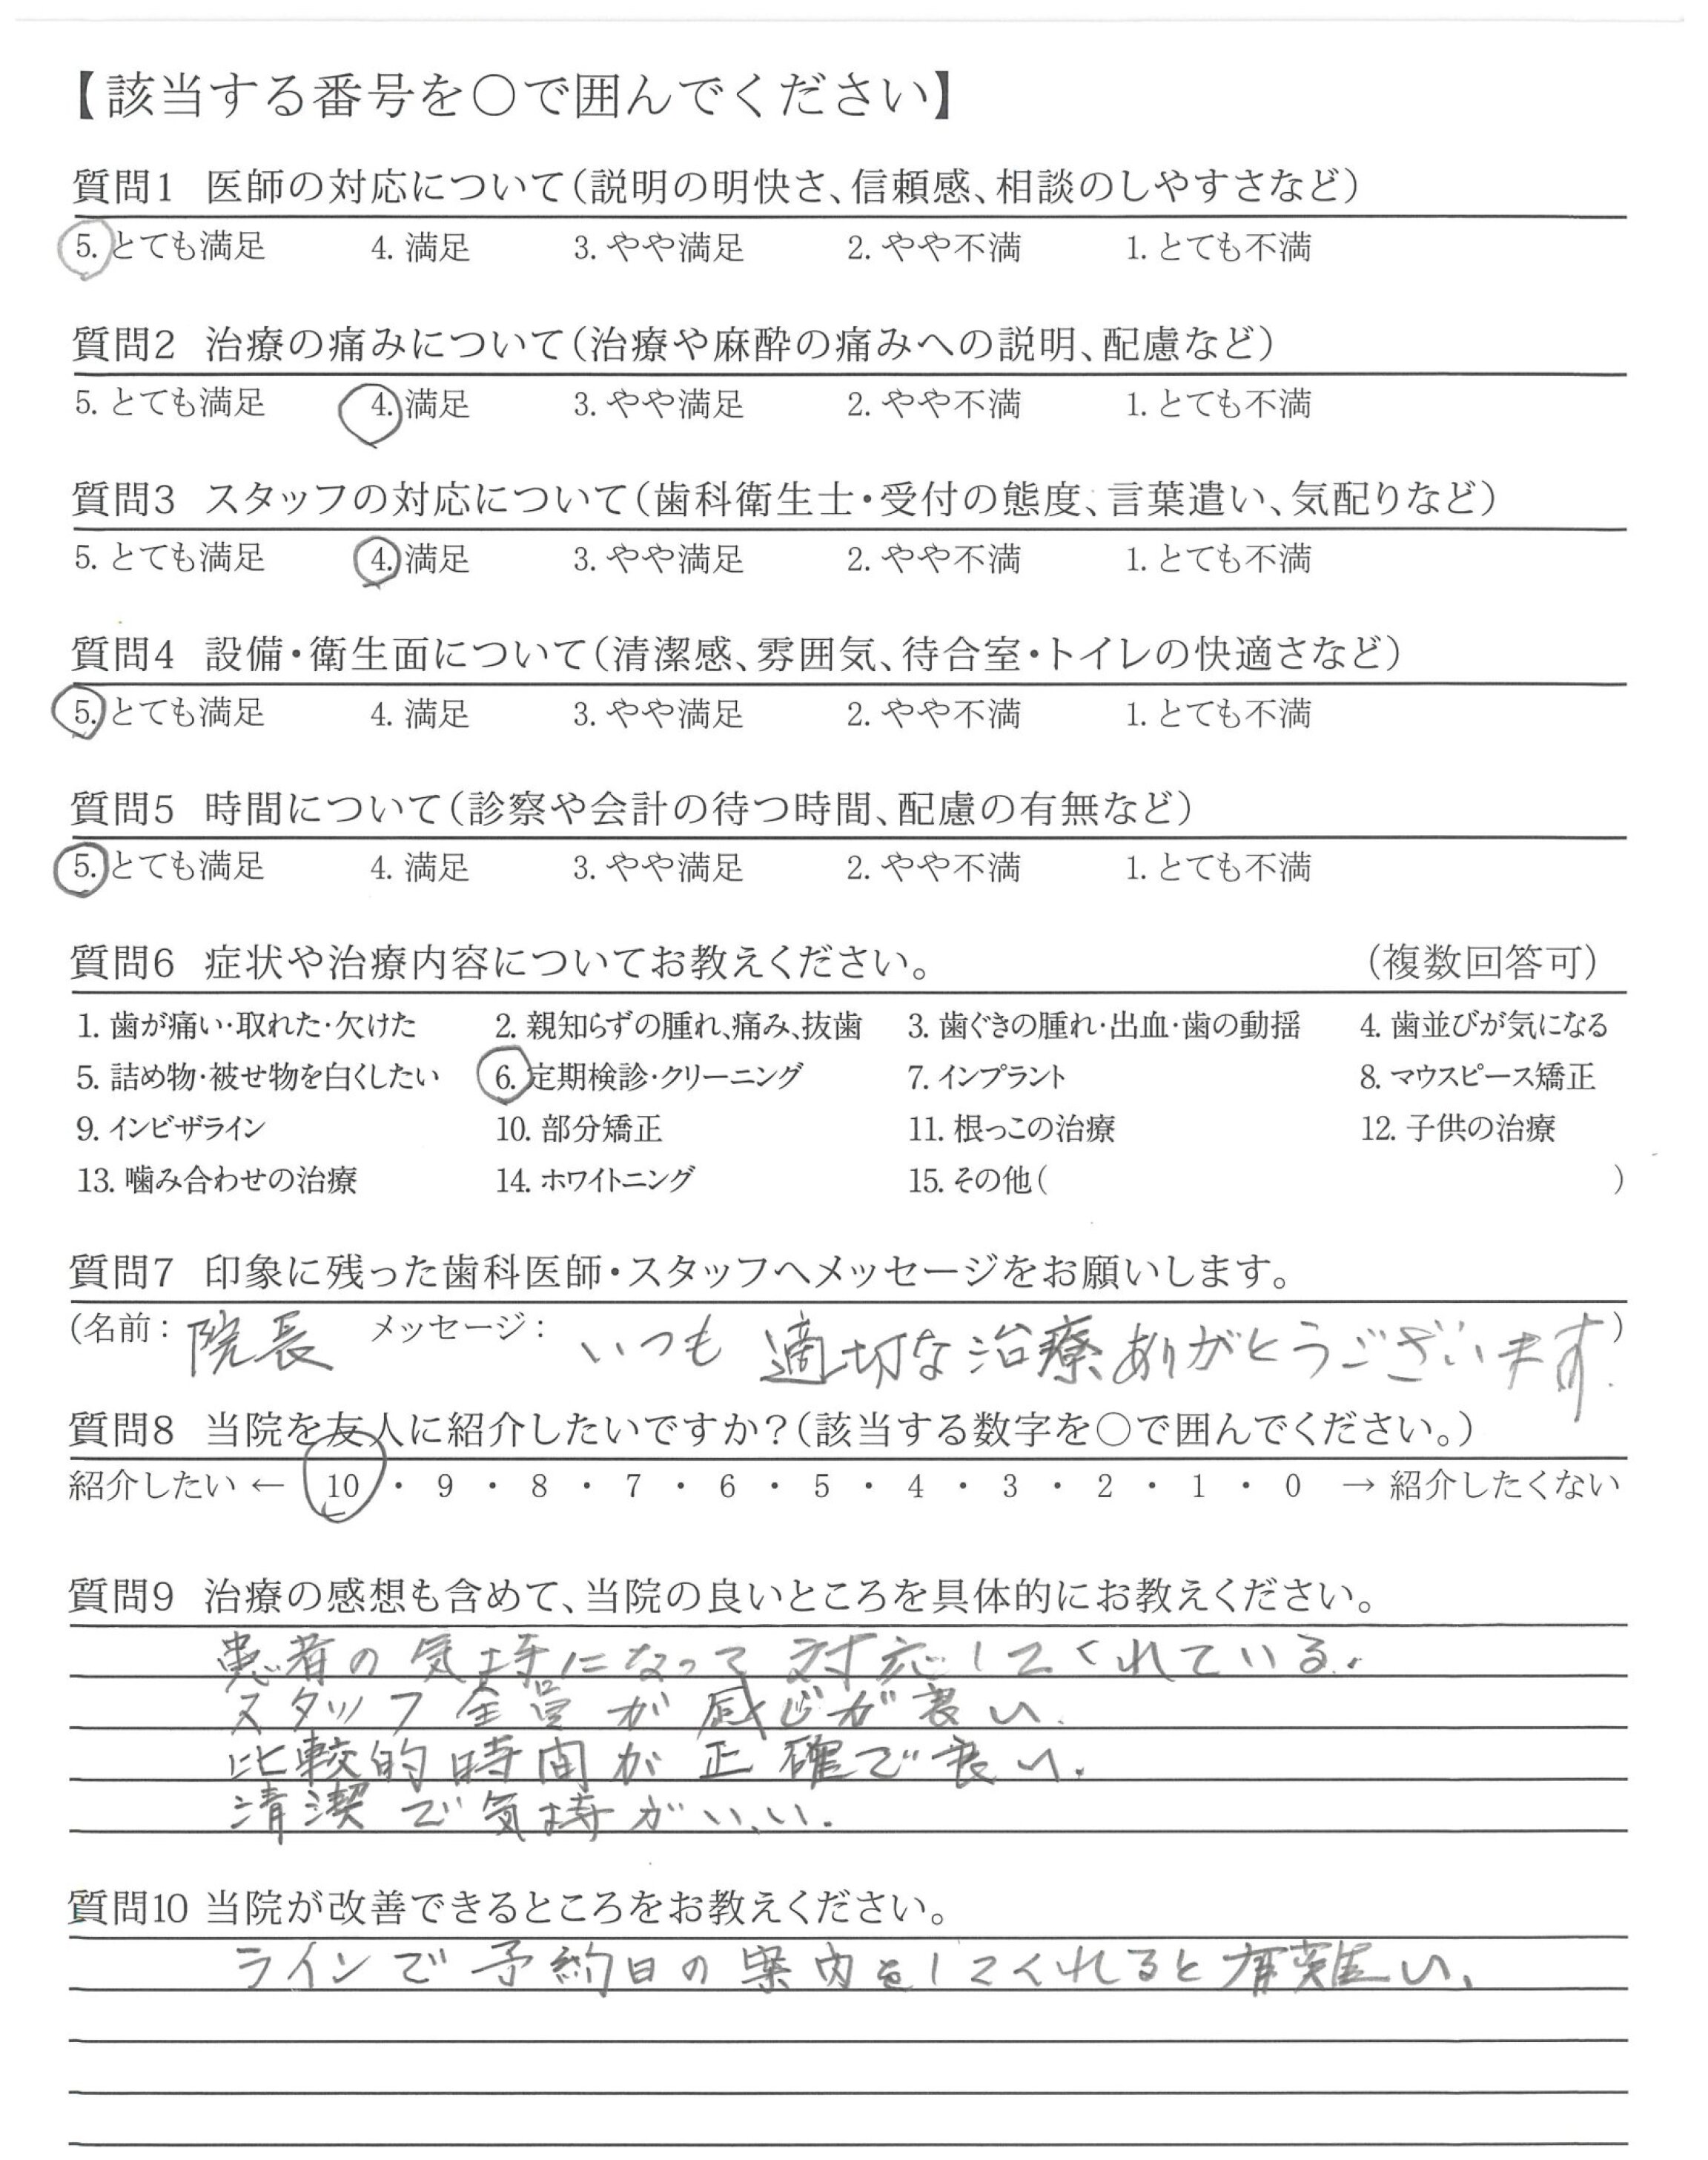 【該当する番号を○で囲んでください】
質問1 医師の対応について(説明の明快さ、信頼感、相談のしやすさなど)
5. とても満足 4. 満足 3. やや満足 2. やや不満 1. とても不満
質問2 治療の痛みについて(治療や麻酔の痛みへの説明、配慮など)
5. とても満足 4. 満足 3. やや満足 2. やや不満 1. とても不満
質問3 スタッフの対応について(歯科衛生士・受付の態度、言葉遣い、気配りなど)
5. とても満足 4. 満足 3. やや満足 2. やや不満 1. とても不満
質問4 設備・衛生面について(清潔感、雰囲気、待合室・トイレの快適さなど)
5. とても満足 4. 満足 3. やや満足 2. やや不満 1. とても不満
質問5 時間について(診察や会計の待つ時間、配慮の有無など)
5. とても満足 4. 満足 3. やや満足 2. やや不満 1. とても不満
質問6 症状や治療内容についてお教えください。 (複数回答可)
1. 歯が痛い・取れた・欠けた 2. 親知らずの腫れ、痛み、抜歯 3. 歯ぐきの腫れ・出血・歯の動揺 4. 歯並びが気になる
5. 詰め物・被せ物を白くしたい 6. 定期検診・クリーニング 7. インプラント 8. マウスピース矯正
9. インビザライン 10. 部分矯正 11. 根っこの治療 12. 子供の治療
13. 噛み合わせの治療 14. ホワイトニング 15. その他( )
質問7 印象に残った歯科医師・スタッフへメッセージをお願いします。
(名前: 院長 メッセージ: いつも 適切な治療ありがとうございます.)
質問8 当院を友人に紹介したいですか?(該当する数字を○で囲んでください。)
紹介したい ← 10 ・ 9 ・ 8 ・ 7 ・ 6 ・ 5 ・ 4 ・ 3 ・ 2 ・ 1 ・ 0 → 紹介したくない
質問9 治療の感想も含めて、当院の良いところを具体的にお教えください。
患者の気持になって対応してくれている.
スタッフ全員が感じが良い.
比較的時間が正確で良い.
清潔で気持がいい.
質問10 当院が改善できるところをお教えください。
ラインで予約日の案内をしてくれると有難い、